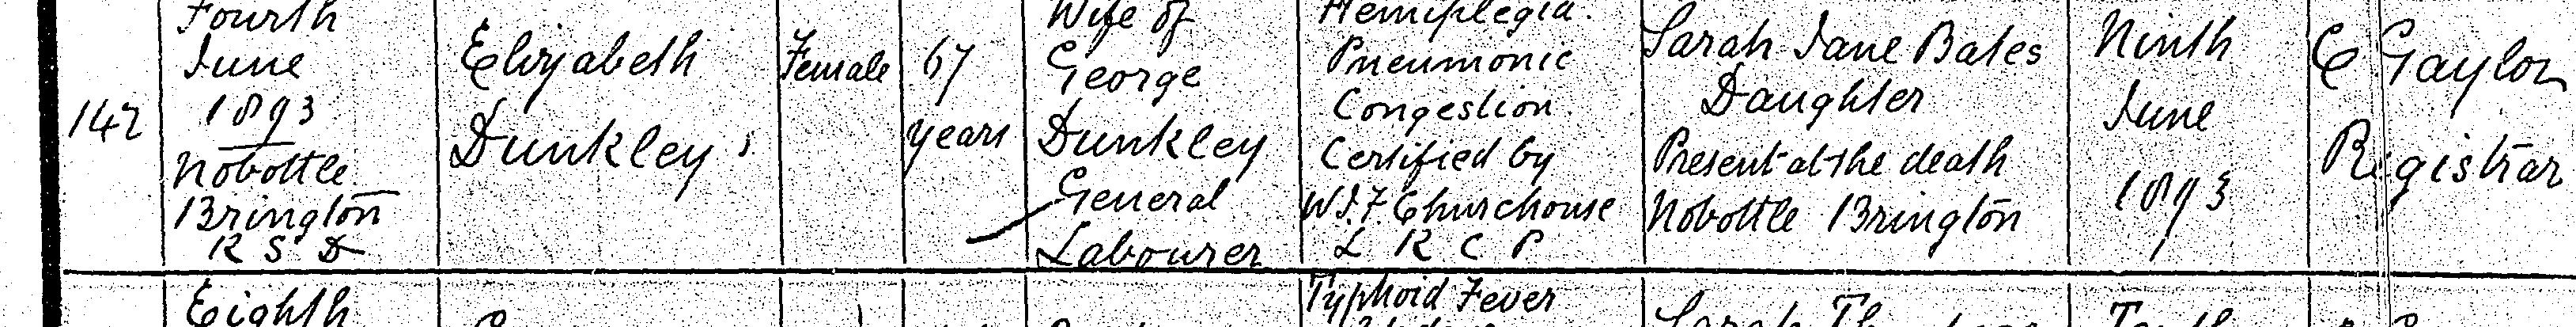 142
Fourth
June
1893
Nobottle
Brington
R S D
Elizabeth
Dunkley
Female
67
years
Wife of
George
Dunkley
General
Labourer
Hemiplegia.
Pneumonic
Congestion
Certified by
W.J.F Churchouse
L R C P
Sarah Jane Bates
Daughter
Present at the death
Nobottle Brington
Ninth
June
1893
C Gaylor
Registrar
Eighth
Typhoid Fever
Sarah
Tenth